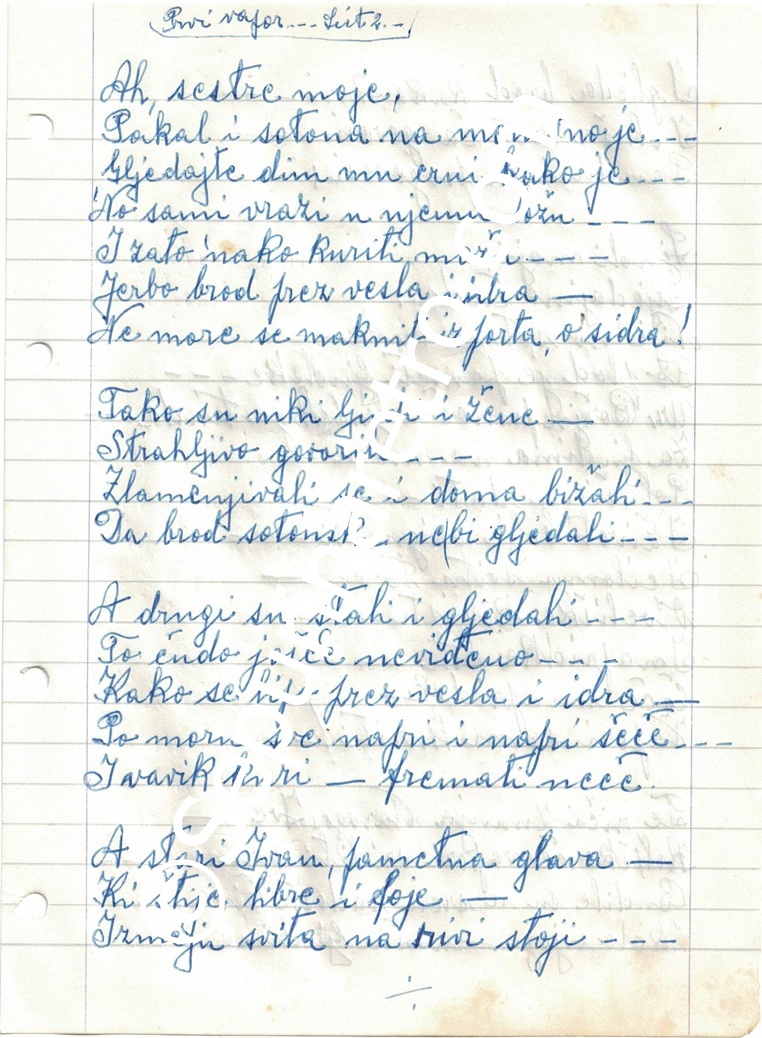 Prvi vapor --- List 2. -
Ah, sestre moje,
Pakal i sotona na
Gljedajte dim mu crni kako je ---
'No sami vrazi u njemu ložu ---
I zato 'nako kuriti može ----
Jerbo brod prez vesla i idra —
Ne more se maknit iz porta, o' sidra!
Tako su niki ljudi i žene —
Strahljivo govorili ---
Zlamenjivali se i doma bižali ---
Da brod sotonski nebi gljedali ---
A drugi su stali i gljedali ---
To čudo jošće neviđeno ---
Kako se prez vesla i idra —
Po moru sve napri i napri šeće ---
I vavik kuri — fremati neće.
A stari Ivan, pametna glava —
Ki štije libre i foje —
Izmeju svita na rivi stoji ---